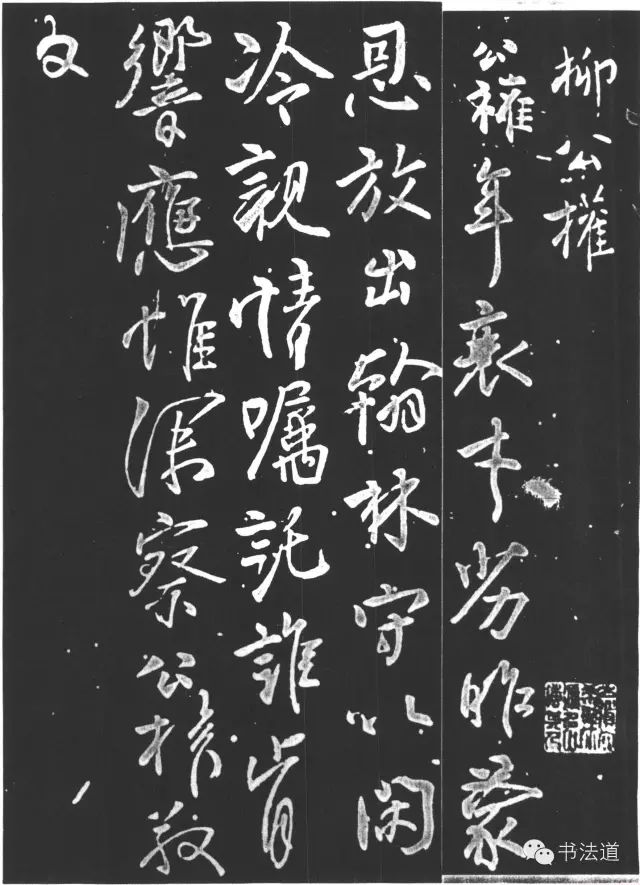 柳公權
公權年衰才劣昨蒙
恩放出翰林守以閑
冷親情嘱託誰肯
響應惟深察公權敬
白
书法道